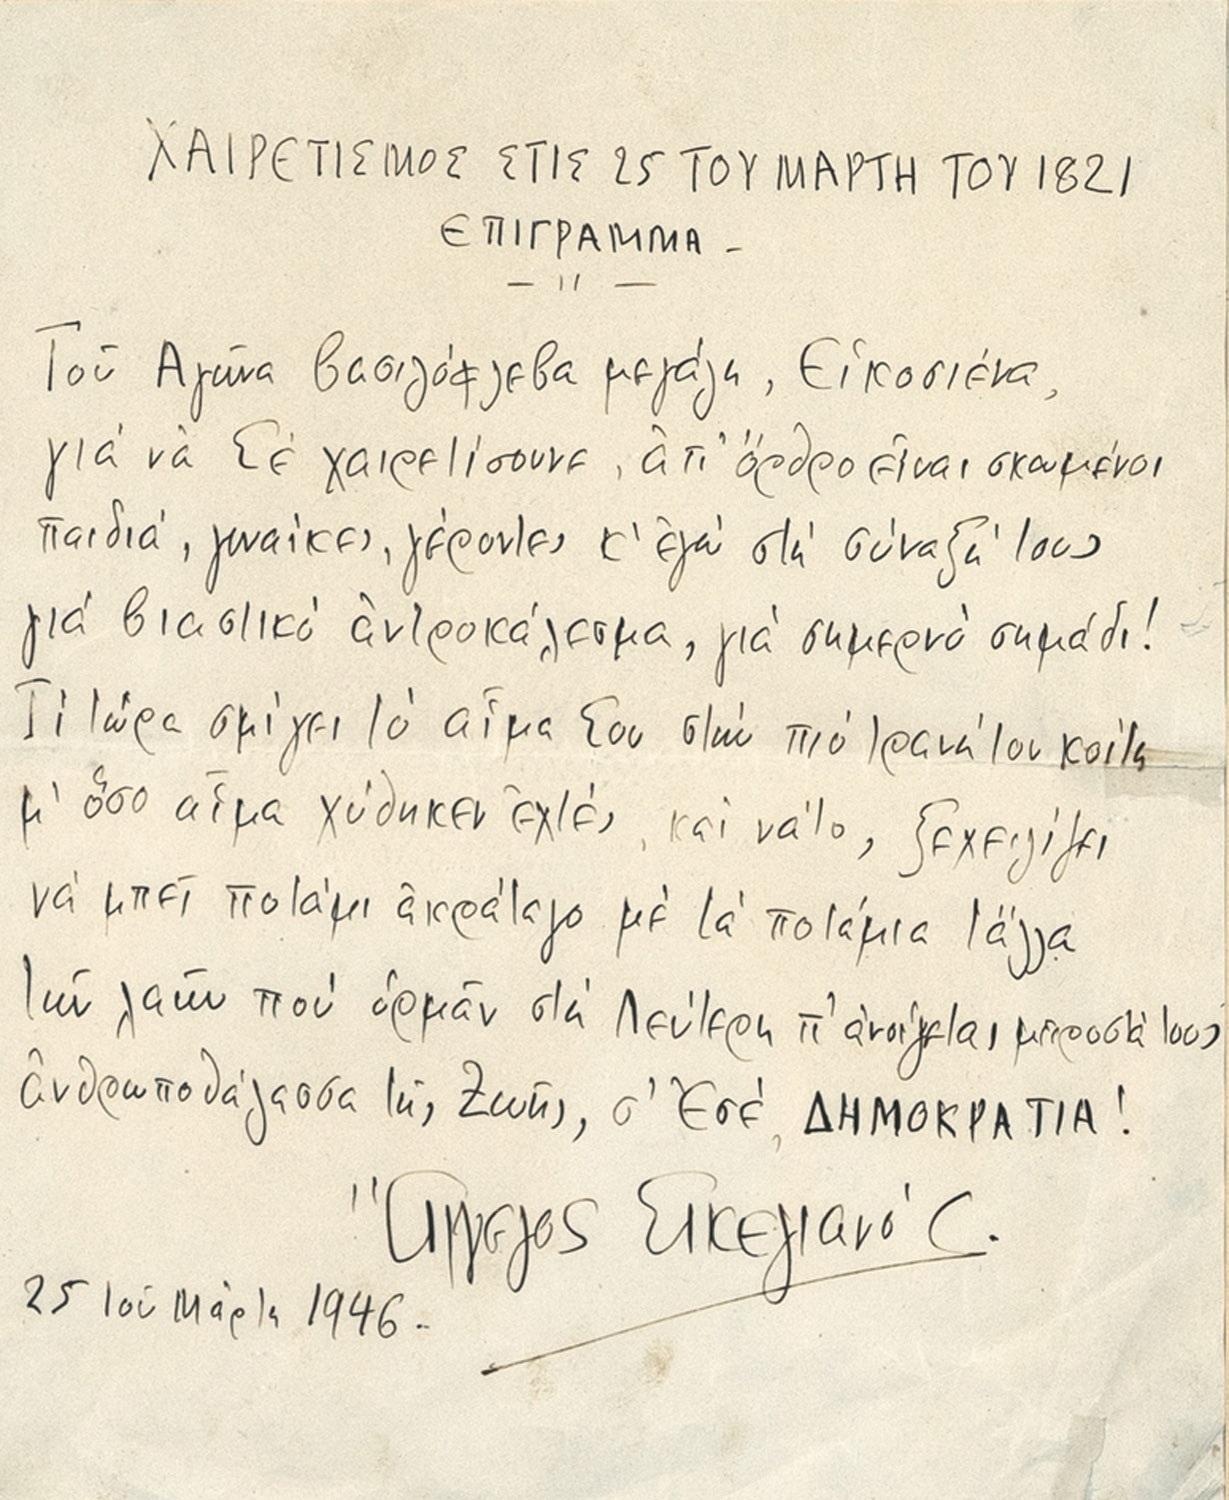 ΧΑΙΡΕΤΙΣΜΟΣ ΣΤΙΣ 25 ΤΟΥ ΜΑΡΤΗ ΤΟΥ 1821
ΕΠΙΓΡΑΜΜΑ -
— " —
Τοῦ Ἀγῶνα βασιλόφλεβα μεγάλη, Εἰκοσιένα,
γιὰ νὰ Σὲ χαιρετίσουνε, ἀπ' ὄρθρο εἶναι σκωμένοι
παιδιά, γυναίκες, γέροντες κ' ἐγὼ στὴ σύναξή τους
γιὰ βιαστικὸ ἀντροκάλεσμα, γιὰ σημερνὸ σημάδι!
Τὶ τώρα σμίγει τὸ αἷμα Σου στὴν πιὸ τρανή του κοίτη
μ' ὅσο αἷμα χύθηκεν ἐχτές, καὶ νά το, ξεχειλίζει
νὰ μπεῖ ποτάμι ἀκράταγο μὲ τὰ ποτάμια τἄλλα
τῶν λαῶν ποὺ ὁρμᾶν στὴ Λεύτερη π' ἀνοίγεται μπροστά τους
ἀνθρωποθάλασσα τῆς Ζωῆς, σ' Ἐσέ, ΔΗΜΟΚΡΑΤΙΑ!
Ἄγγελος Σικελιανός.
25 τοῦ Μάρτη 1946.-